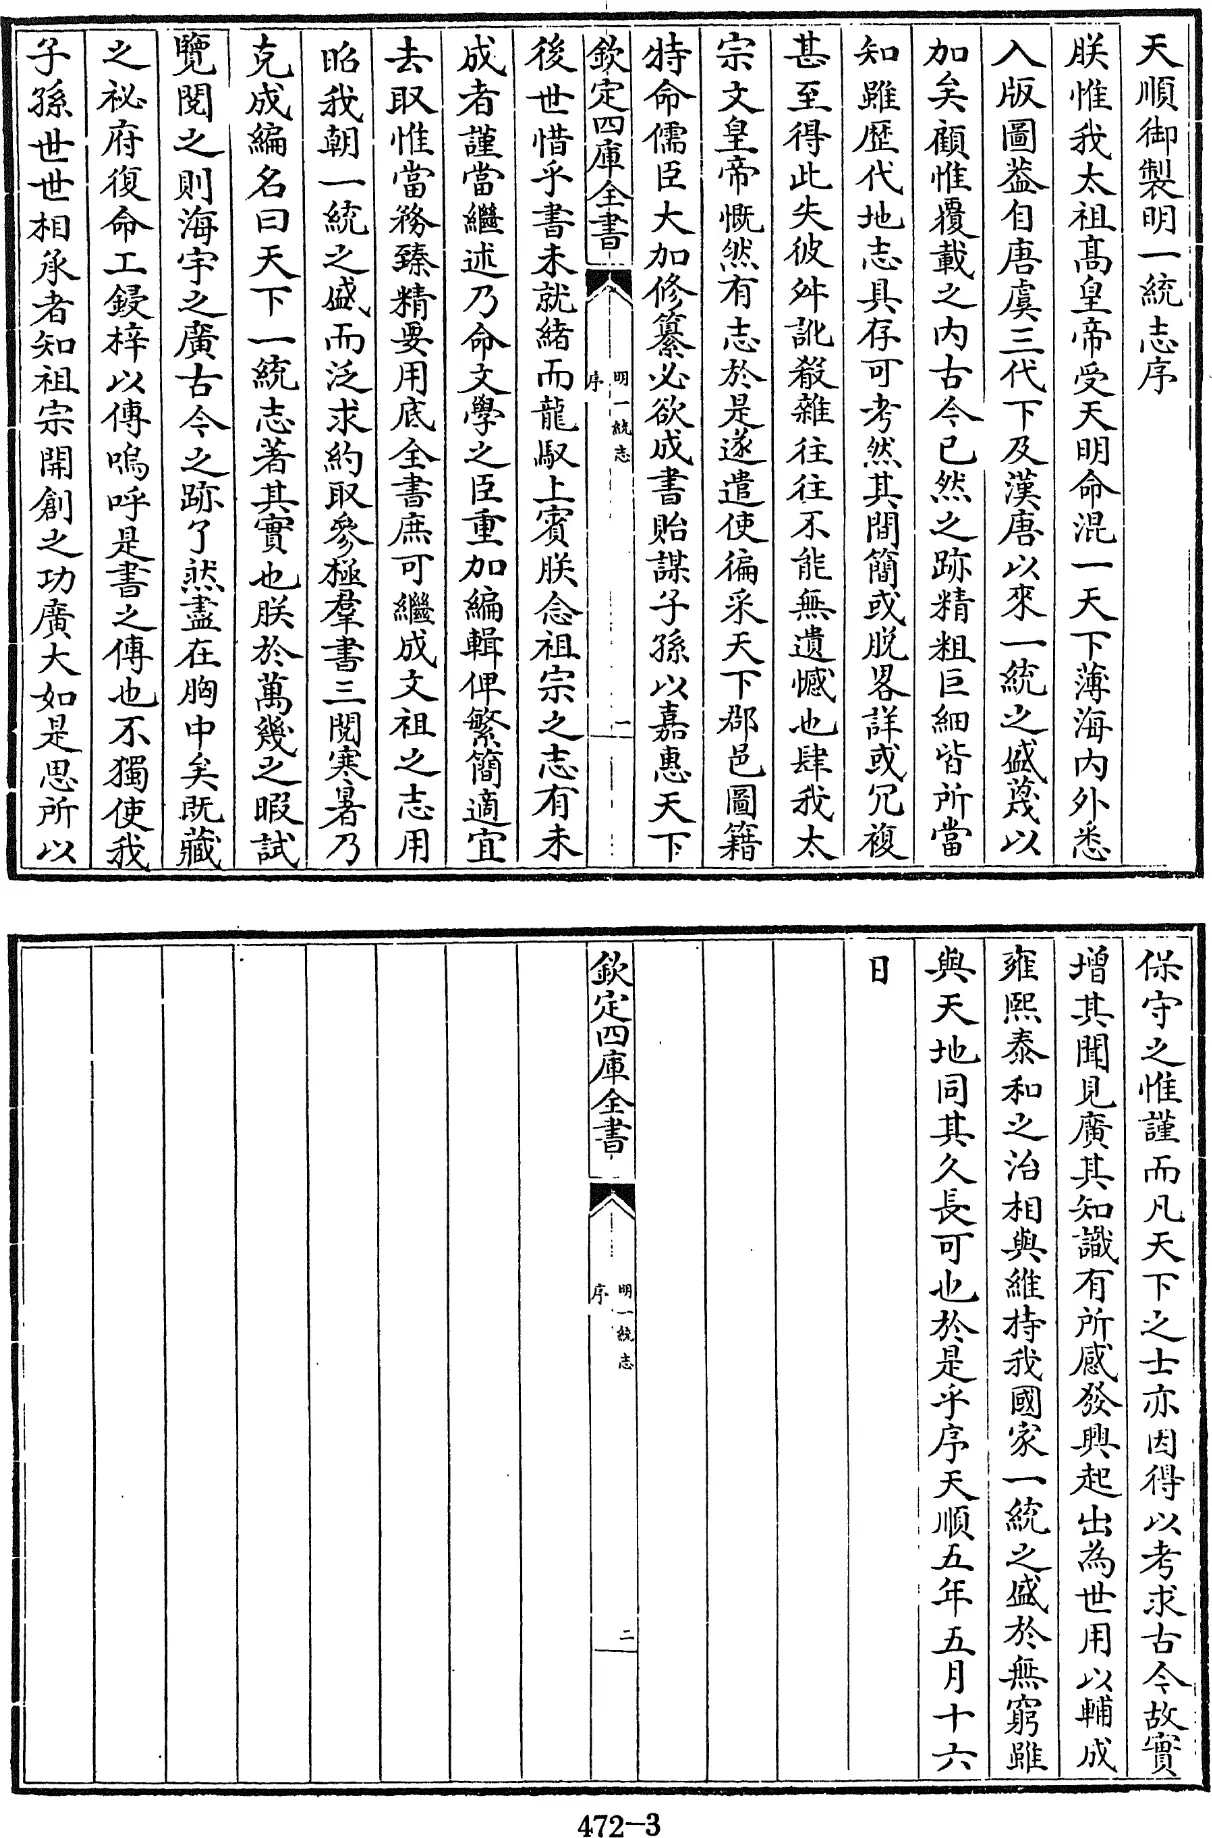 天順御製明一統志序
朕惟我太祖髙皇帝受天明命混一天下薄海内外悉
入版圖葢自唐虞三代下及漢唐以來一統之盛蔑以
加矣顧惟覆載之内古今已然之跡精粗巨細皆所當
知雖歴代地志具存可考然其間簡或脱畧詳或冗複
甚至得此失彼舛訛殽雜往往不能無遺憾也肆我太
宗文皇帝慨然有志於是遂遣使徧采天下郡邑圖籍
特命儒臣大加修纂必欲成書貽謀子孫以嘉惠天下
欽定四庫全書
明一統志
序
一
後世惜乎書未就緒而龍馭上賓朕念祖宗之志有未
成者謹當繼述乃命文學之臣重加編輯俾繁簡適宜
去取惟當務臻精要用底全書庶可繼成文祖之志用
昭我朝一統之盛而泛求約取參極羣書三閲寒暑乃
克成編名曰天下一統志著其實也朕於萬幾之暇試
覽閲之則海宇之廣古今之跡了然盡在胸中矣既藏
之祕府復命工鋟梓以傳嗚呼是書之傳也不獨使我
子孫世世相承者知祖宗開創之功廣大如是思所以
保守之惟謹而凡天下之士亦因得以考求古今故實
增其聞見廣其知識有所感發興起出為世用以輔成
雍熙泰和之治相與維持我國家一統之盛於無窮雖
與天地同其久長可也於是乎序天順五年五月十六
日
欽定四庫全書
明一統志
序
二
472-3